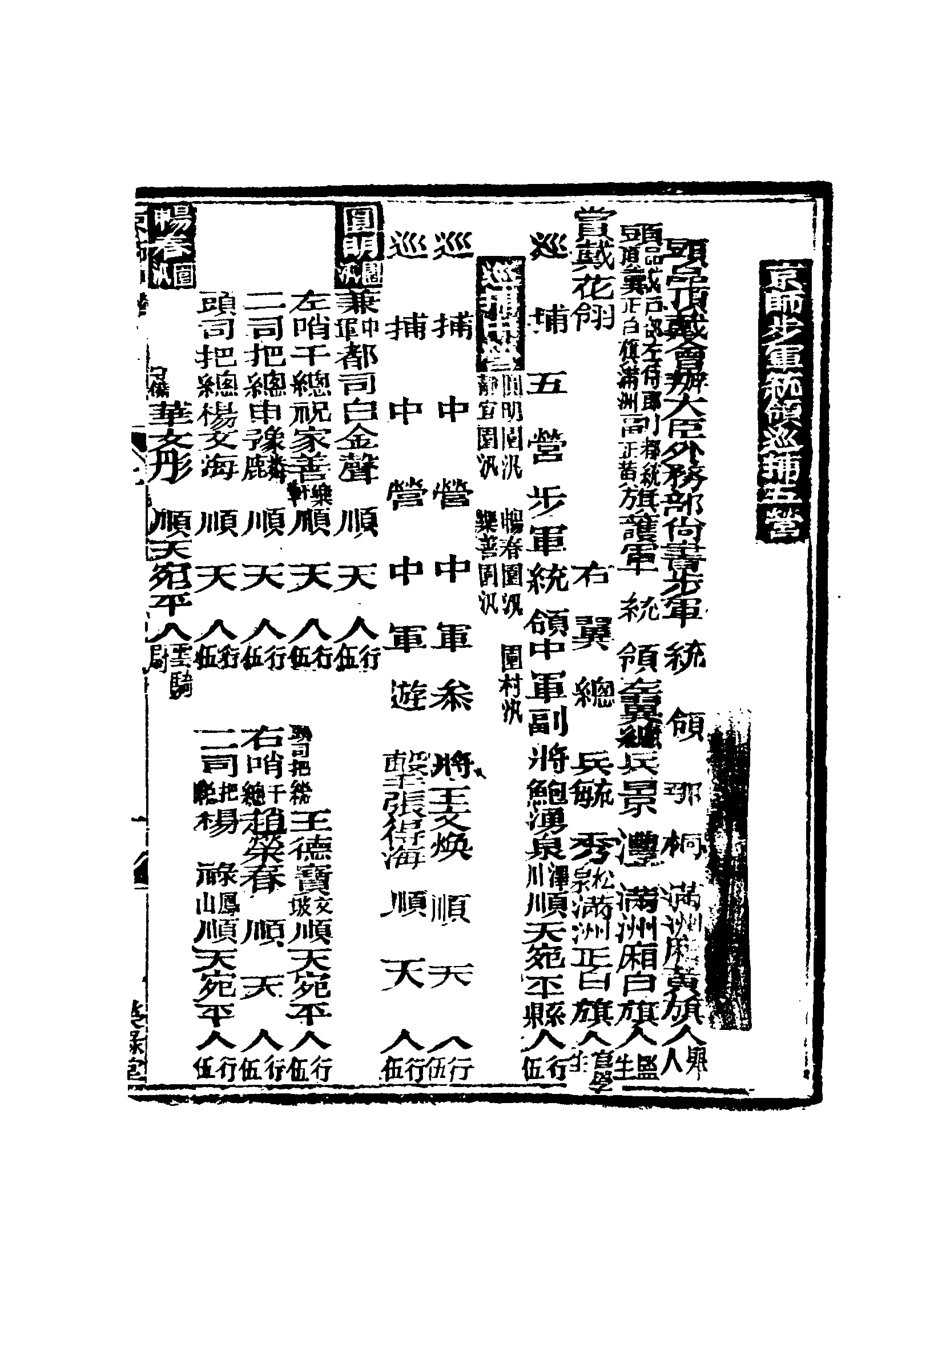 京師步軍統領巡捕五營
頭品頂戴會辦大臣外務部尚書步軍統領那桐滿洲廂黃旗人舉人
頭品頂戴戶部左侍郎正白旗滿洲副都統正黃旗護軍統領左翼總兵景灃滿洲廂白旗人監生
賞戴花翎 右翼總兵毓秀松泉滿洲正白旗人官學生
巡捕五營步軍統領中軍副將鮑湧泉澤川順天宛平縣人行伍
巡捕中營 圓明園汛 暢春園汛 圍村汛 靜宜園汛 樂善園汛
巡捕中營中軍參將王文煥順天人行伍
巡捕中營中軍遊擊張得海順天人行伍
圓明園汛 兼中軍都司白金聲順天人行伍
左哨千總祝家善樂軒順天人行伍 頭司把總王德寶文坡順天宛平人行伍
二司把總申豫麟鹿順天人行伍 右哨千總趙榮春順天人行伍
頭司把總楊文海順天人行伍 二司把總楊祿鳳山順天宛平人行伍
暢春園汛 守備華文彤順天宛平人雲騎尉
榮錄堂